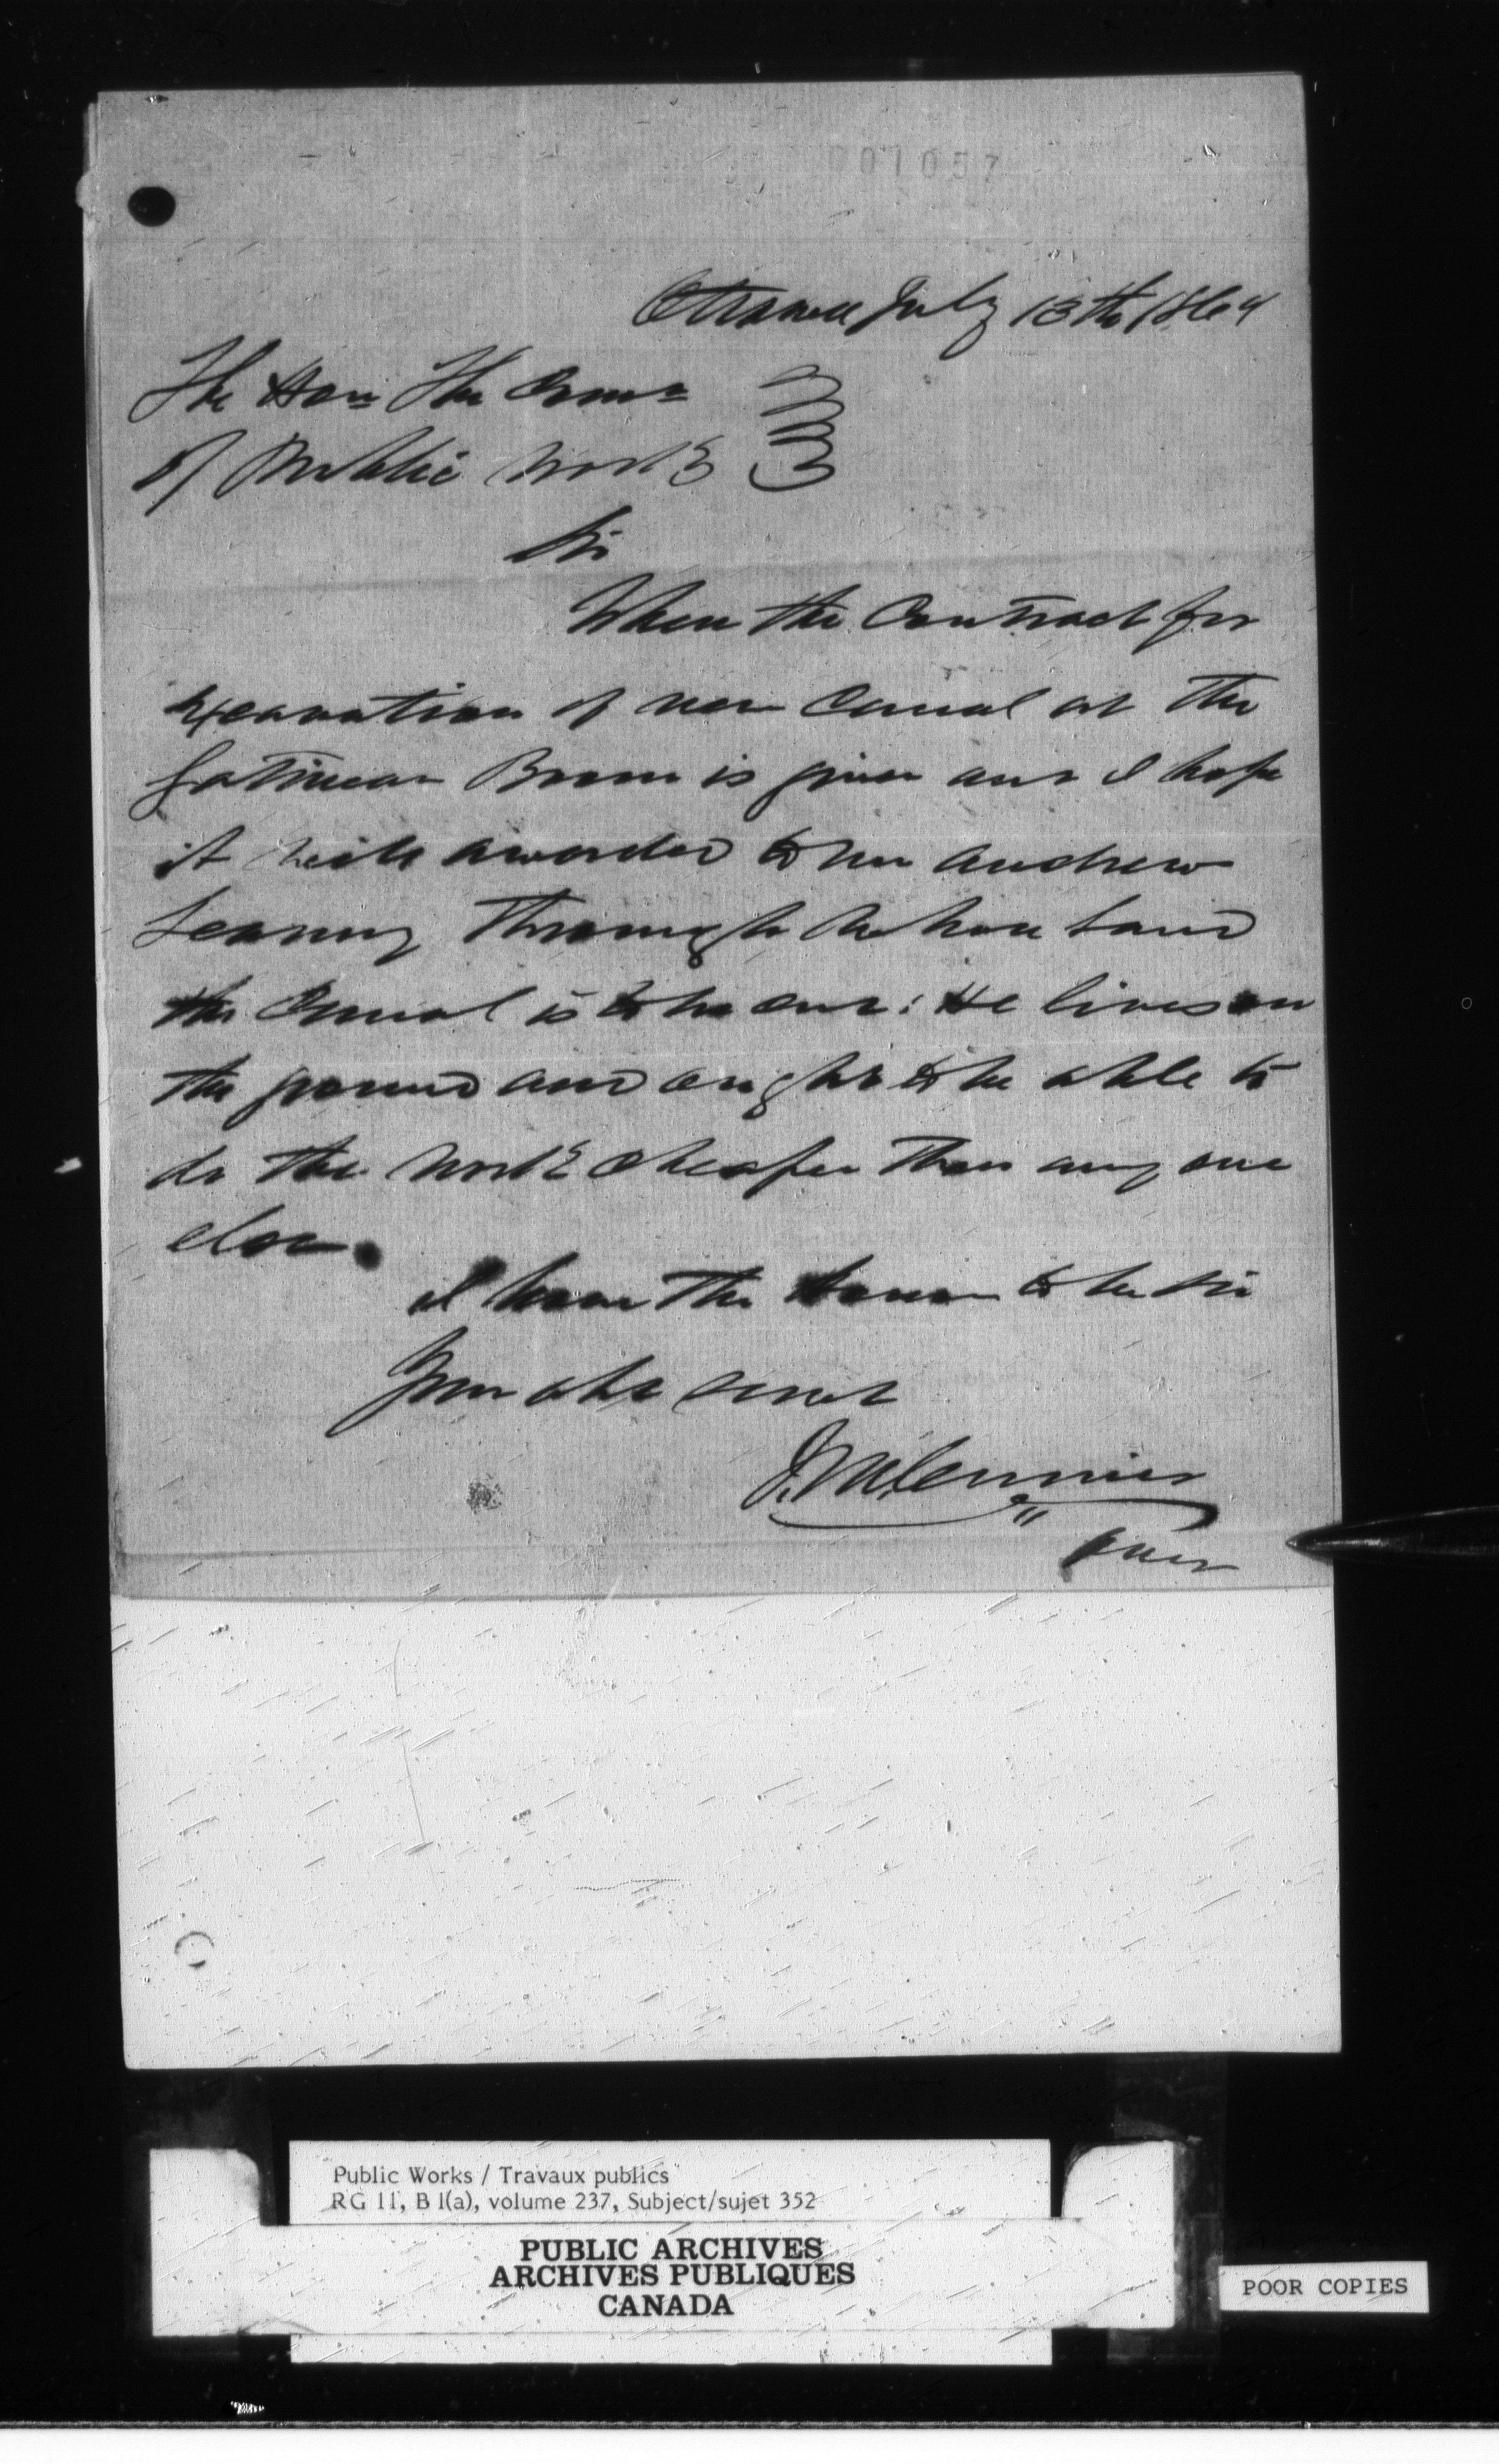 001057
Ottawa July 13th 1864
The Hon The Comr
of Public Works
Sir
When the Contract for
excavation of new Canal at the
Gatineau Boom is given out I hope
it will awarded to Mr Andrew
Leamy Through whose land
the Canal is to be cut: He lives on
the ground and ought to be able to
do the work cheaper than any one
else.
I have the Honor to be Sir
Your obt servt
over
Public Works / Travaux publics
RG 11, B 1(a), volume 237, Subject/sujet 352
PUBLIC ARCHIVES
ARCHIVES PUBLIQUES
CANADA
POOR COPIES